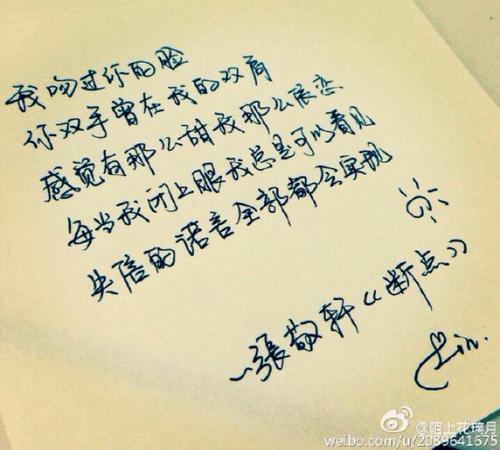 我吻过你的脸
你双手曾在我的双肩
感觉有那么甜我那么依恋
每当我闭上眼我总是可以看见
失信的诺言全部都会实现
~張敬轩《断点》
Lin.
@陌上花璃月
weibo.com/u/2089641675